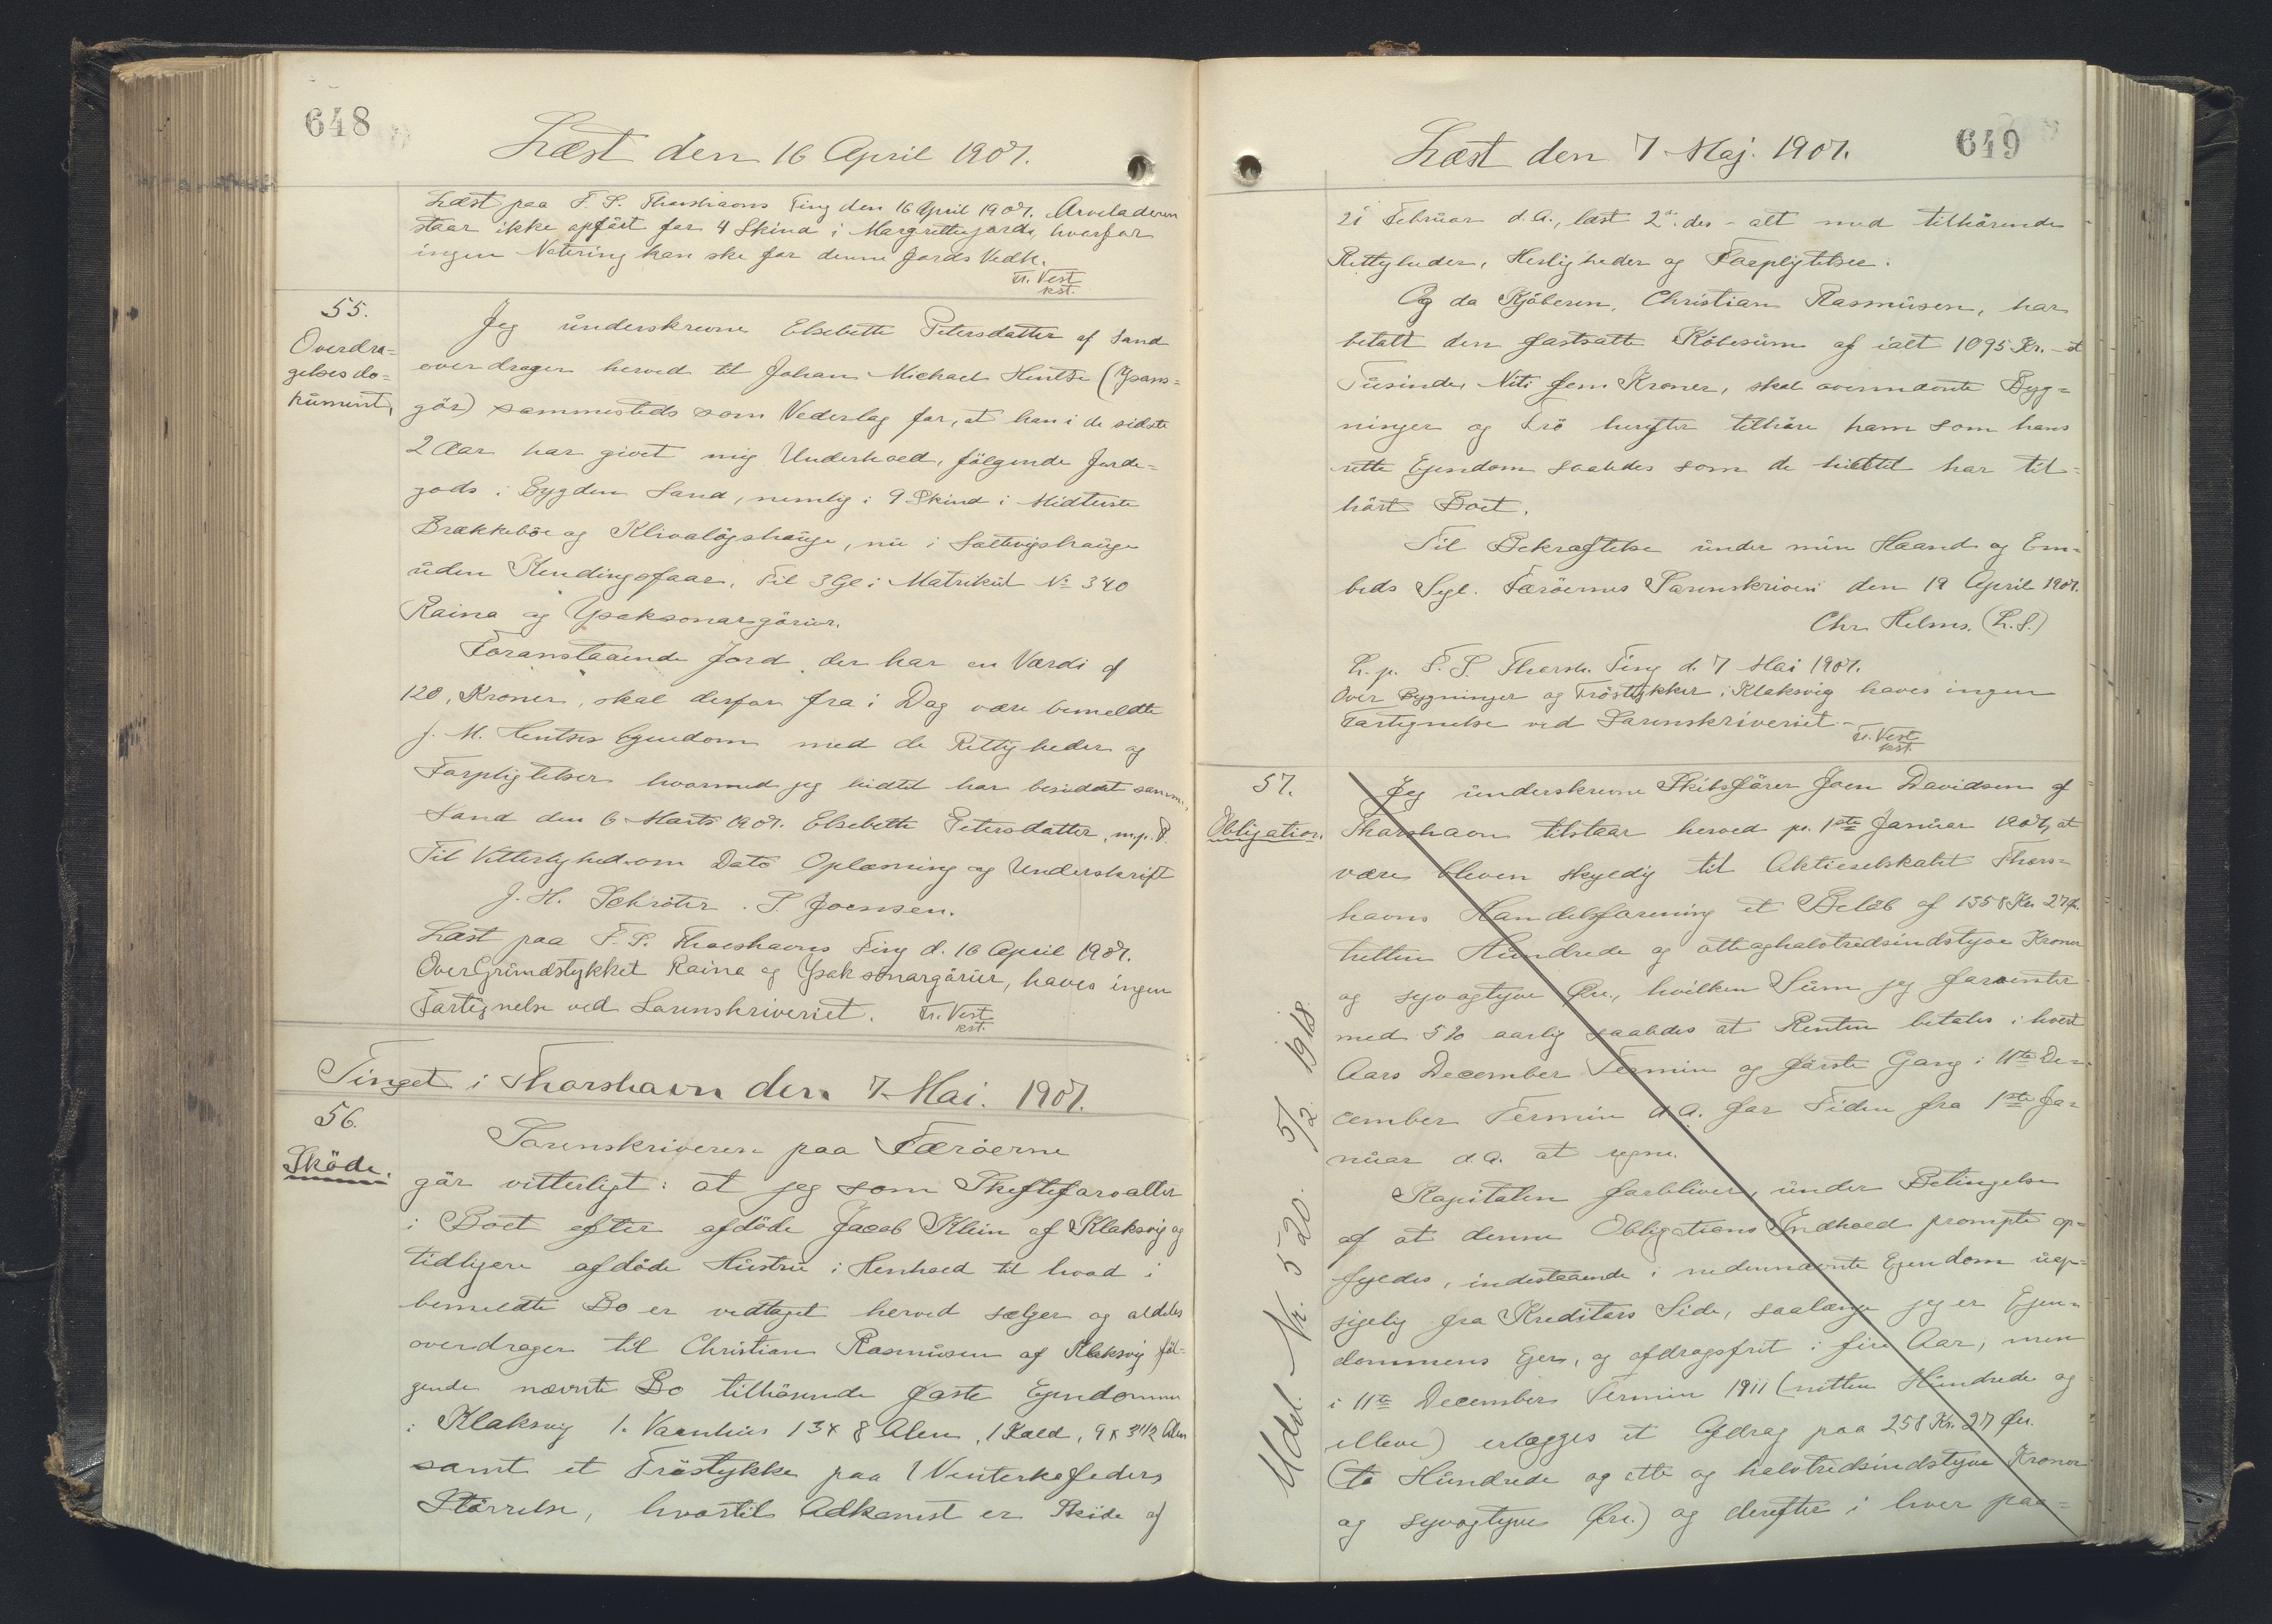 648
Læst den 16 April 1907.
Læst paa F. S. Thorshavns Ting den 16 April 1907. Arveladeren
staar ikke opført for 4 Skind i Margrethejords, hvorfor
ingen Notering kan ske for denne Jords Vedk.
Fr. Vest
kst.
55.
Overdra=
gelsesdo=
kument,
Jeg underskrevne Elsebeth Petersdatter af Sand
overdrager herved til Johan Michael Hentze (Ysans=
gör) sammesteds som Vederlag for, at han i de sidste
2 Aar har givet mig Underhold, fölgende Jorde=
gods i Bygden Sand, nemlig: 9 Skind i Midterste
Brækkeböe og Klivalögshauge, nu i Saltvigshauge
uden Kendingsfaar. Til 3 Gl: Matrikul No 340
Raina og Ysaksonargörur.
Foranstaaende Jord, der har en Værdi af
120, Kroner, skal derfor fra i Dag være bemeldte
J. M. Hentzes Ejendom med de Rettigheder og
Forpligtelser hvormed jeg hidtil har besiddet samme,
Sand den 6 Marts 1907. Elsebeth Petersdatter, m.p. P.
Til Vitterlighed om Dato Oplæsning og Underskrift
J. H. Schröter. S. Joensen.
Læst paa F. S. Thorshavns Ting d. 16 April 1907.
Over Grundstykket Raina og Ysaksonargörur, haves ingen
Fortegnelse ved Sorenskriveriet. Fr. Vest
kst.
Tinget i Thorshavn den 7. Mai. 1907.
56.
Sköde.
Sorenskriveren paa Færöerne
gör vitterligt: at jeg som Skifteforvalter
i Boet efter afdöde Jacob Klein af Klaksvig og
tidligere afdöde Hustru i Henhold til hvad i
bemeldte Bo er vedtaget herved sælger og aldeles
overdrager til Christian Rasmussen af Klaksvig föl=
gende nævnte Bo tilhörende faste Ejendomme
i Klaksvig 1. Vaanhus 13 x 8 Alen, 1 Kald, 9 x 3 1/2 Alen
samt et Tröstykke paa 1 Vinterkofoders
Störrelse, hvortil Adkomst er Sköde af
649
Læst den 7 Maj. 1907.
21 Februar d. A., læst 2den ds - alt med tilhörende
Rettigheder, Herligheder og Forpligtelser.
Og da Kjöberen, Christian Rasmussen, har
betalt den fastsatte Köbesum af ialt 1095 Kr. - et
Tusinde, Niti fem Kroner, skal ovennævnte Byg=
ninger og Trö herefter tilhöre ham som hans
rette Ejendom saaledes som de hidtil har til=
hört Boet.
Til Bekræftelse under min Haand og Em=
beds Segl. Færöernes Sorenskriveri den 19 April 1907.
Chr. Helms. (L. S.)
L. p. F. S. Thorsh. Ting d. 7 Mai 1907.
Over Bygninger og Tröstykker i Klaksvig haves ingen
Fortegnelse ved Sorenskriveriet -
Fr. Vest
kst.
57.
Obligation.
Jeg underskrevne Skibsförer Joen Davidsen af
Thorshavn tilstaar herved pr. 1ste Januar 1907, at
være bleven skyldig til Aktieselskabet Thors=
havns Handelsforening et Belöb af 1358 Kr. 27 Ør.
tretten Hundrede og otteoghalvtredsindstyve Kroner
og syvogtyve Øre, hvilken Sum jeg forrenter
med 5 % aarlig saaledes at Renten betales i hvert
Aars December Termin og förste Gang i 11te De=
cember Termin d. A. for Tiden fra 1ste Ja=
nuar d. A. at regne.
Kapitalen forbliver, under Betingelse
af at denne Obligations Indhold prompte op=
fyldes, indestaaende i nedennævnte Ejendom uop=
sigelig fra Kreditors Side, saalænge jeg er Ejen=
dommens Ejer, og afdragsfrit i fire Aar, men
i 11te December Termin 1911 (nitten Hundrede og
elleve) erlægges et Afdrag paa 258 Kr. 27 Ør.
(to Hundrede og otte og halvtredsindstyve Kroner
og syvogtyve Øre.) og derefter i hver paa=
Udsl. Nr. 520. 5/2 1918.